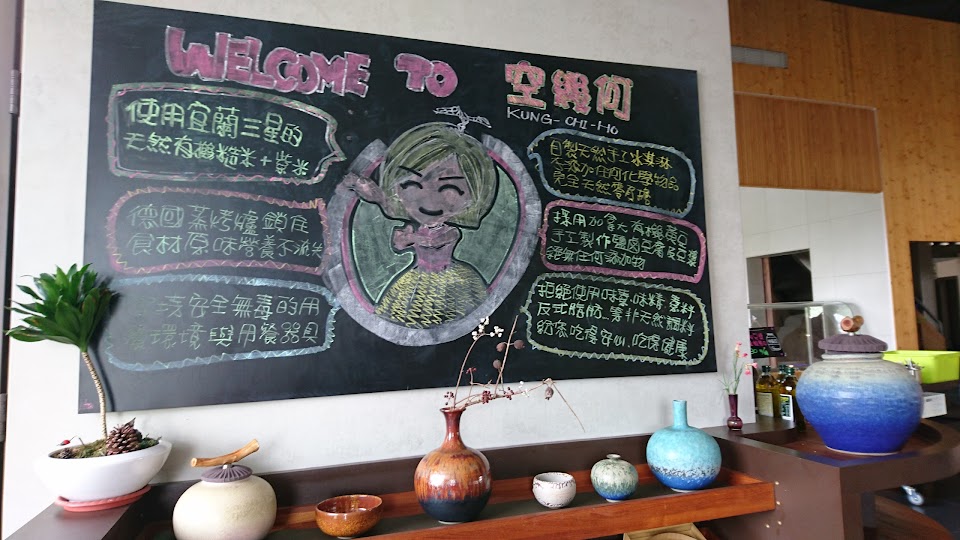 WELCOME TO 空幾何
KUNG-CHI-HO
使用宜蘭三星的
天然有機糙米+紫米
德國蒸烤爐鎖住
食材原味營養不流失
安全無毒的用
環境與用餐器具
自製天然手工冰淇淋
不添加任何化學物品
完全天然零負擔
採用加拿大有機黃豆
手工製作鹽鹵豆腐及豆漿
絕無任何添加物
拒絕使用味素.味精.香料
反式脂肪...等非天然調料
給您吃得安心.吃得健康